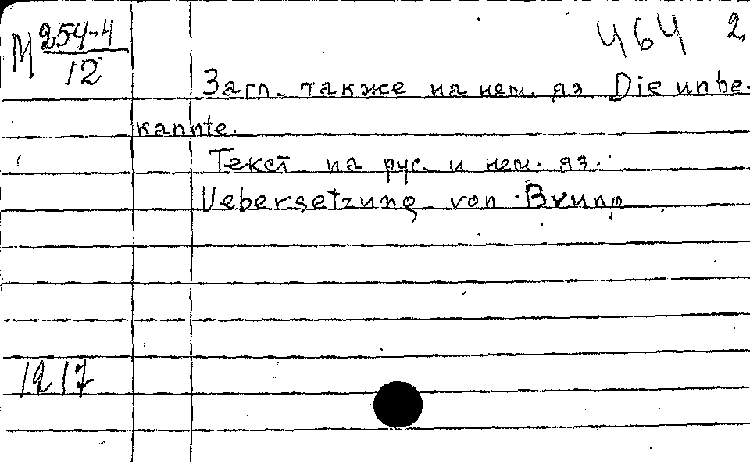 М 254-4/12
464 2
Загл. также на нем. яз Die unbe-
kannte.
Текст на рус. и нем. яз.
Uebersetzung von
1217